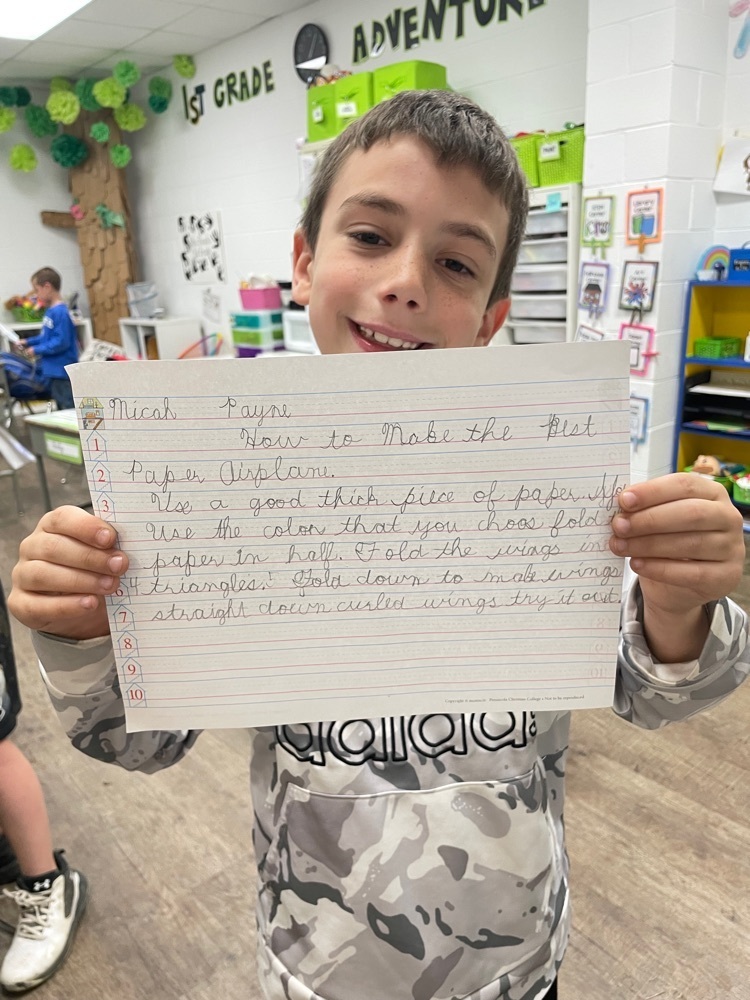 ADVENTURE
1ST GRADE
Micah Payne
1 How to Make the Best
2 Paper Airplane.
3 Use a good thick piece of paper.
Use the color that you choos fold
paper in half. Fold the wings in
4 triangles. Fold down to make wings
straight down curled wings try it out.
7
8
9
10
adidas